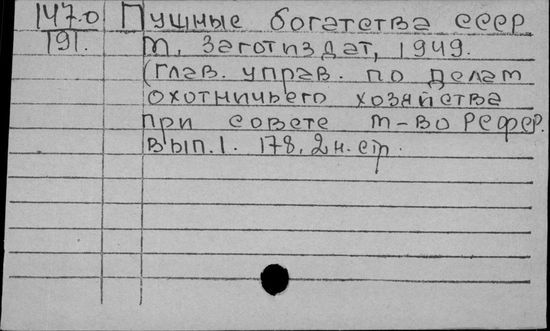 147.0 Пушные богатства СССР
191. М, Заготиздат, 1949.
(Глав. управ. по делам
охотничьего хозяйства
при совете М-во РСФСР.
Вып. 1. 178, 2н. стр.